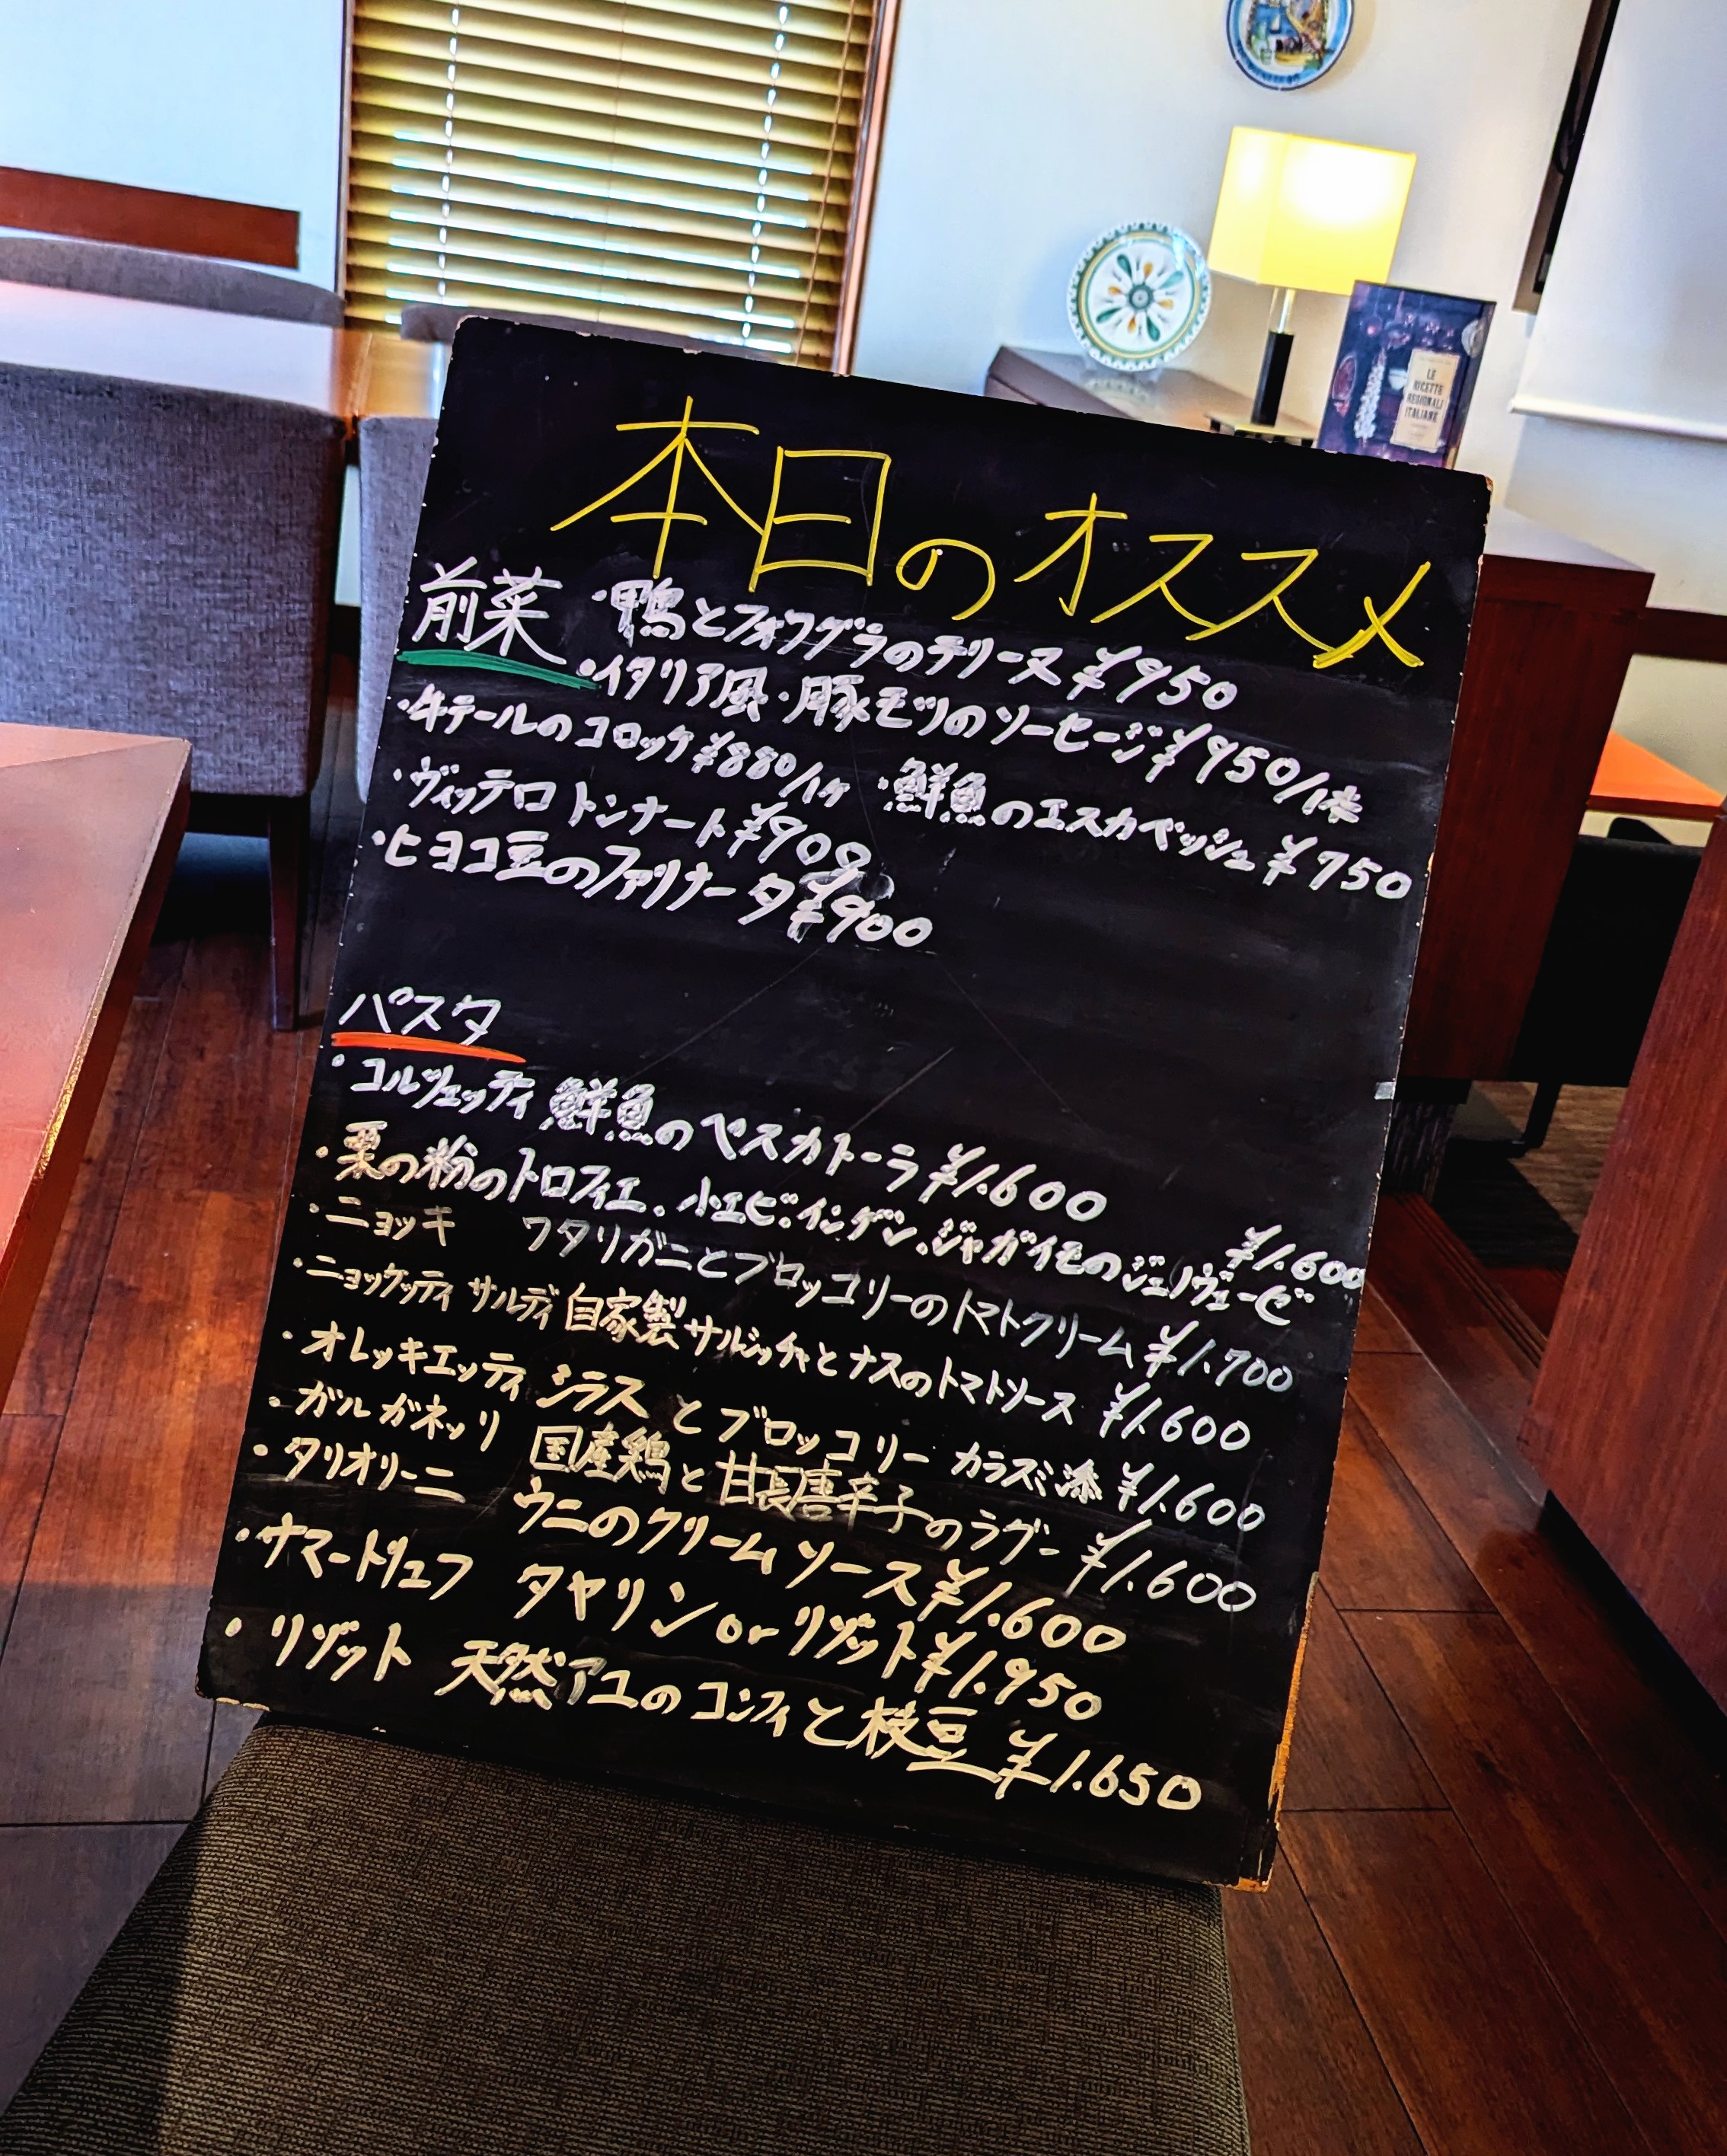 LE
RICETTE
REGIONALI
ITALIANE
本日のオススメ
前菜 ・鴨とフォワグラのテリーヌ ¥950
・イタリア風・豚モツのソーセージ ¥950/1本
・牛テールのコロッケ ¥880/1ケ ・鮮魚のエスカベッシュ ¥750
・ヴィッテロ トンナート ¥900
・ヒヨコ豆のファリナータ ¥900
パスタ
・コルツェッティ 鮮魚のペスカトーラ ¥1.600
・栗の粉のトロフィエ、小エビ、インゲン、ジャガイモのジェノヴェーゼ ¥1.600
・ニョッキ ワタリガニとブロッコリーのトマトクリーム ¥1.700
・ニョッケッティ サルディ 自家製サルシッチャとナスのトマトソース ¥1.600
・オレッキエッティ シラスとブロッコリー カラスミ添 ¥1.600
・ガルガネッリ 国産鶏と甘長唐辛子のラグー ¥1.600
・タリオリーニ ウニのクリームソース ¥1.600
・サマートリュフ タヤリン or リゾット ¥1.950
・リゾット 天然アユのコンフィと枝豆 ¥1.650